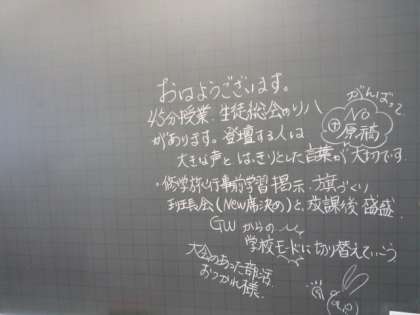 おはようございます。
45分授業、生徒総会のリハ
があります。登壇する人は
大きな声と はっきりとした言葉が大切です
がんばって
NO
原稿
・修学旅行事前学習掲示、旗づくり
班長会(New席決め)と、放課後 盛盛
GWからの
学校モードに切り替えていこう
大会のあった部活
おつかれ様